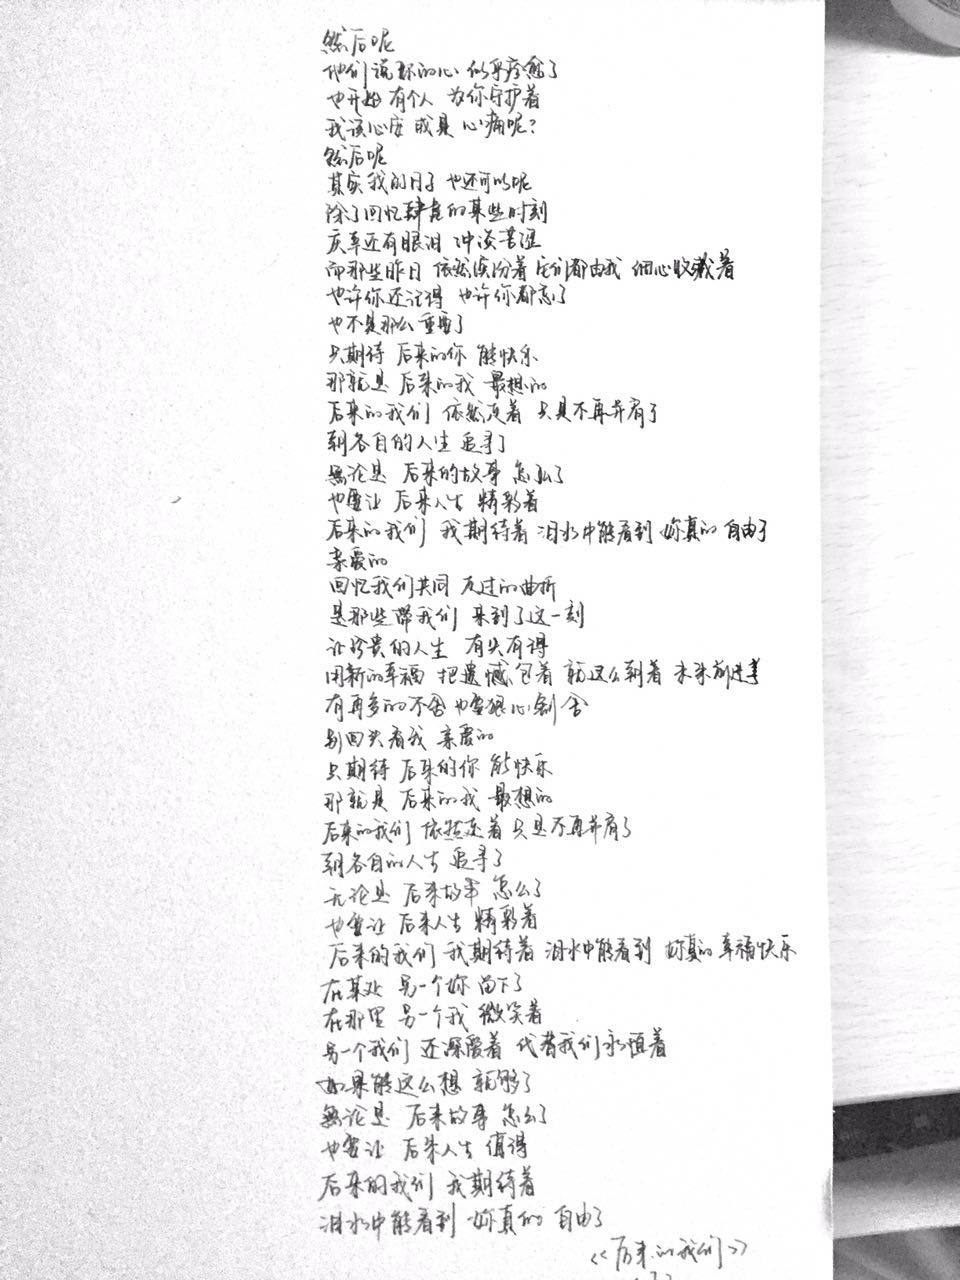 然后呢
他们说你的心 似乎痊愈了
也开始有个人 为你守护着
我该心安 或是 心痛呢?
然后呢
其实我的日子 也还可以呢
除了回忆肆虐的某些时刻
庆幸还有眼泪 冲淡苦涩
而那些昨日 依然缤纷着 它们都由我 细心收藏着
也许你还记得 也许你都忘了
也不是那么重要了
只期待 后来的你 能快乐
那就是 后来的我 最想的
后来的我们 依然走着 只是不再并肩了
朝各自的人生 追寻了
無论是 后来的故事 怎么了
也要让 后来人生 精彩着
后来的我们 我期待着 泪水中能看到 妳真的 自由了
亲爱的
回忆我们共同 走过的曲折
是那些带我们 来到了这一刻
让珍贵的人生 有失有得
用新的幸福 把遗憾包着 就这么朝着 未来前进着
有再多的不舍 也要狠心割舍
别回头看我 亲爱的
只期待 后来的你 能快乐
那就是 后来的我 最想的
后来的我们 依然走着 只是不再并肩了
朝各自的人生 追寻了
无论是 后来故事 怎么了
也要让 后来人生 精彩着
后来的我们 我期待着 泪水中能看到 妳真的幸福快乐
在某处 另一个妳 留下了
在那里 另一个我 微笑着
另一个我们 还深爱着 代替我们永恒着
如果能这么想 就够了
無论是 后来故事 怎么了
也要让 后来人生 值得
后来的我们 我期待着
泪水中能看到 妳真的 自由了
<<后来的我们>>